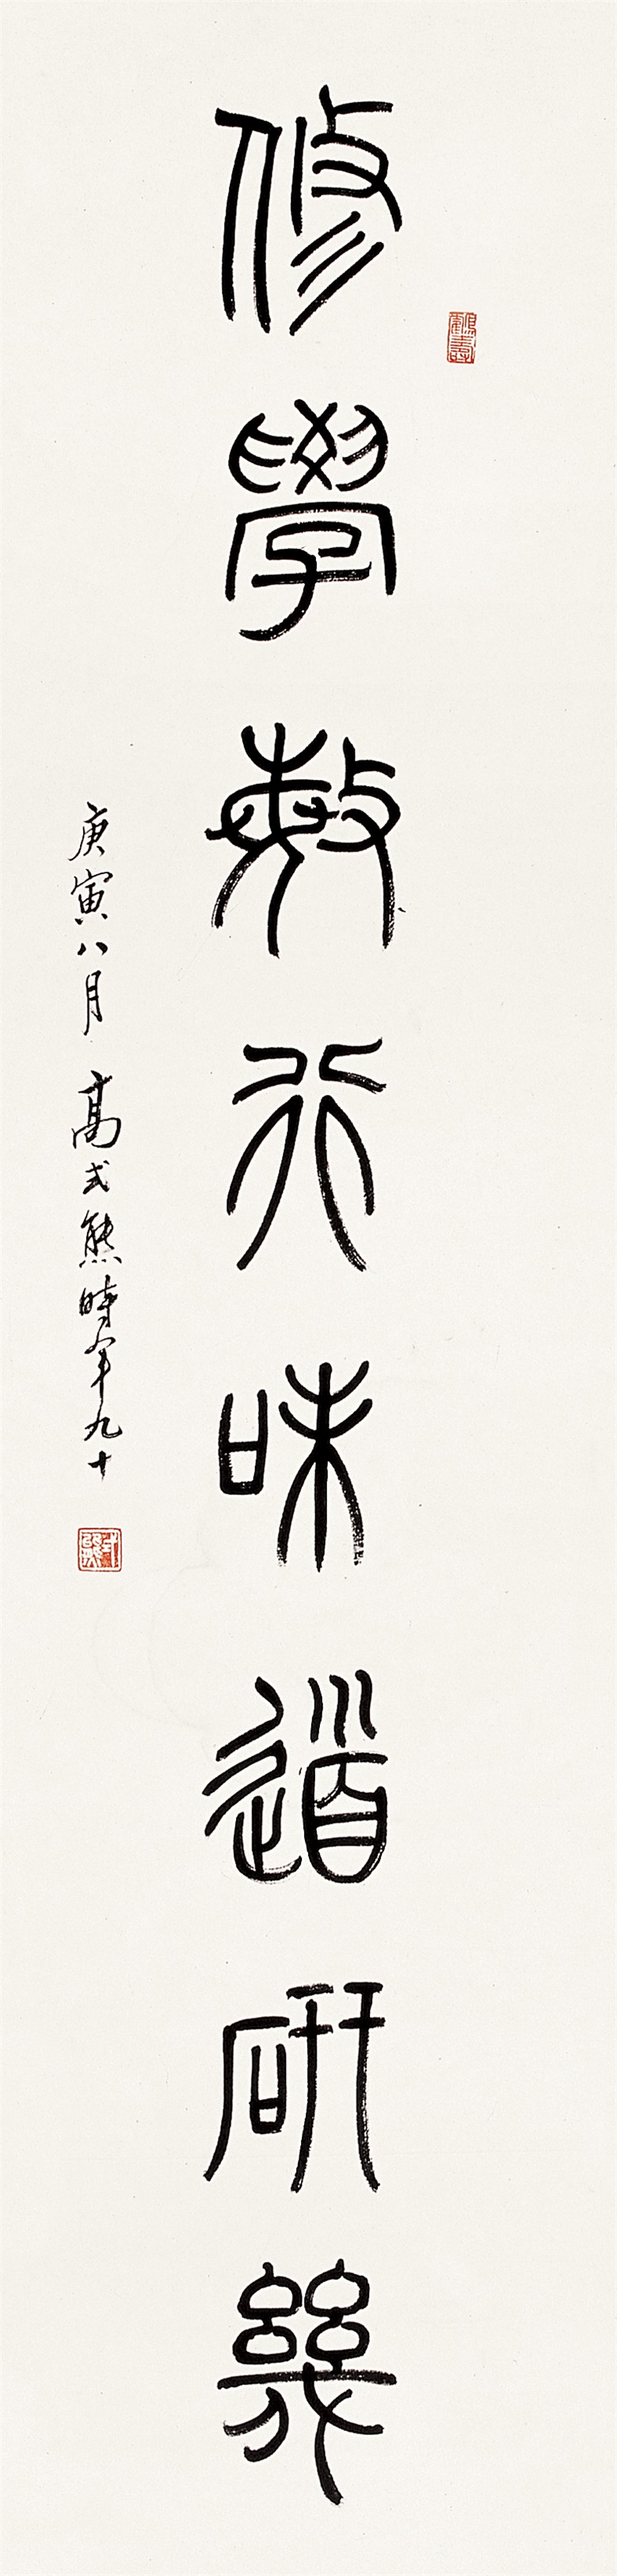 修學敏行味道研幾
庚寅八月 高式熊時年九十
式熊